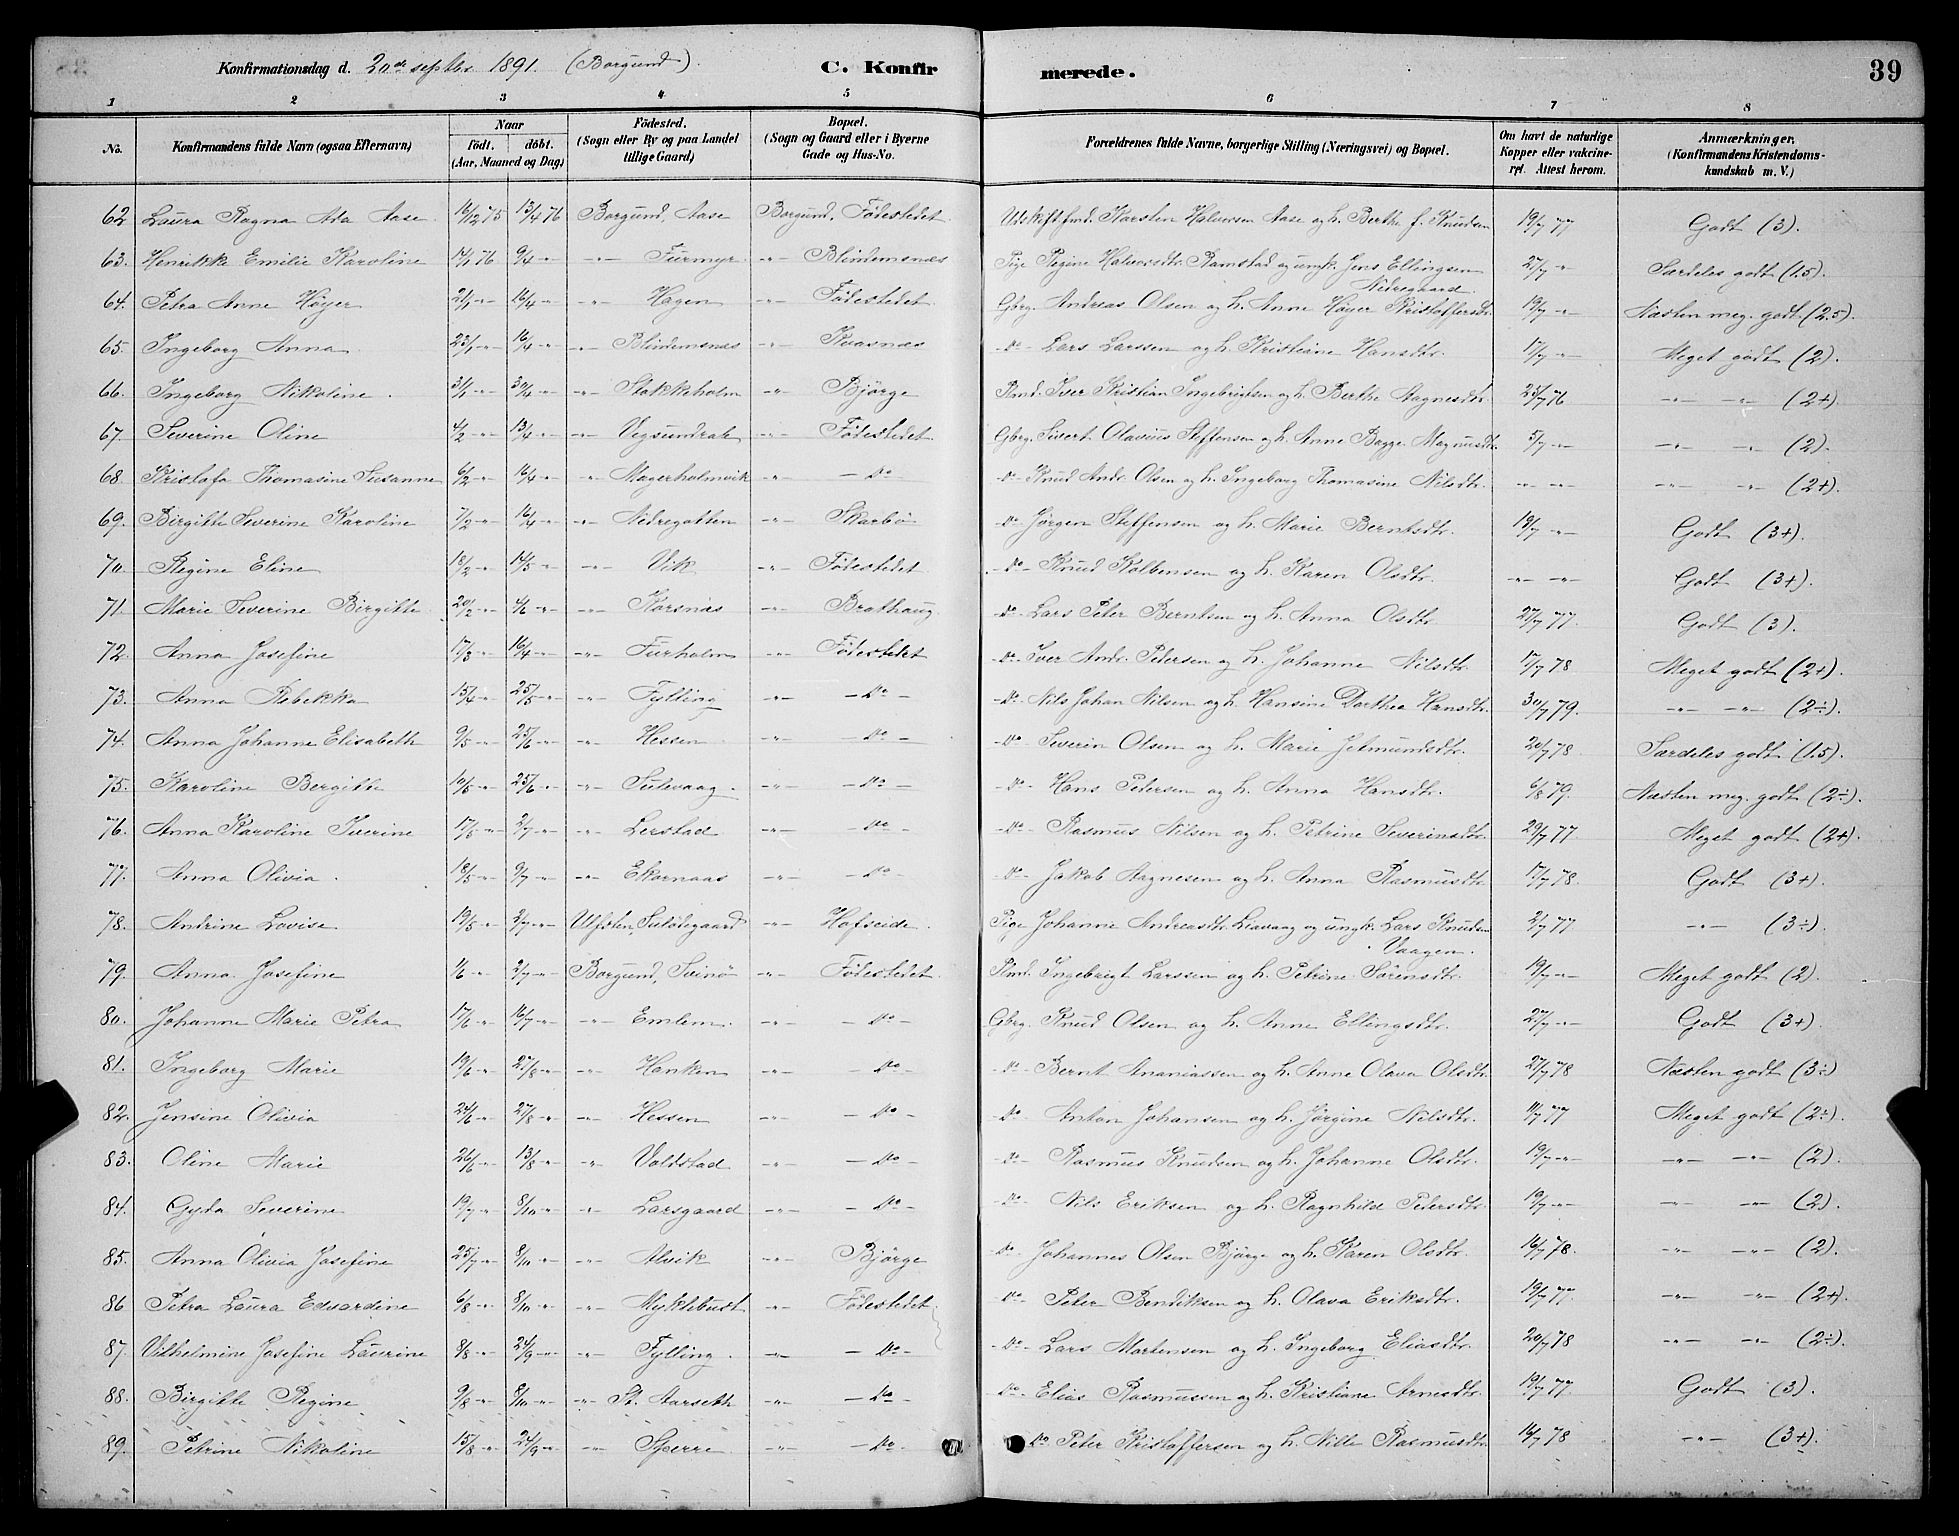 Konfirmationsdag d. 20de septbr 1891. (Borgund). C. Konfirmerede. 39
1 2 3 4 5 6 7 8
No. Konfirmandens fulde Navn (ogsaa Efternavn) Naar födt. döbt. (Aar, Maaned og Dag) Födested. (Sogn eller By og paa Landet tillige Gaard) Bopæl. (Sogn og Gaard eller i Byerne Gade og Hus-No. Forældrenes fulde Navne, borgerlige Stilling (Næringsvei) og Bopæl. Om havt de naturlige Kopper eller vakcineret. Attest herom. Anmærkninger, (Konfirmandens Kristendomskundskab m. V.)
62 Laura Ragna Ada Aase. 14/12 75 13/4 76 Borgund, Aase Borgund, Födestedet Udskiftfmd. Karsten Halvorsen Aase og h. Berthe f. Knudsen 19/7 77 Godt (3).
63. Henrikke Emilie Karoline 14/1 76 9/4 -"- -"- Furmyr -"- Blindemsnæs Pige Regine Halvorsdtr. Ramstad og ungk. Jens Ellingsen Nedregaard 27/7 -"- Særdeles godt (1.5).
64. Petra Anne Höyer 21/1 -"- 16/4 -"- -"- Hagen -"- Födestedet Gbrg. Andreas Olsen og h. Anne Höyer Kristoffersdtr. 19/7 -"- Næsten meg. godt (2.5).
65. Ingeborg Anna 23/1 -"- 16/4 -"- -"- Blindemsnæs -"- Kvasnæs -Do- Lars Larssen og h. Kristiane Hansdtr. 17/7 -"- Meget godt (2).
66. Ingeborg Nikoline. 31/1 -"- 30/4 -"- -"- Stokkholm -"- Björge Rmd. Iver Kristian Ingebrigtsen og h. Berthe Aagnesdtr. 25/7 76 -"- -"- (2+)
67. Severine Oline 4/2 -"- 13/4 -"- -"- Vegsundrak -"- Födestedet Gbrg. Sivert Olavius Steffensen og h. Anne Bagge Magnusdtr. 5/7 -"- -"- -"- (2).
68. Kristofa Thomasine Susanne 6/2 -"- 16/4 -"- -"- Magerholmvik -"- -Do- -Do- Knud Andr. Olsen og h. Ingeborg Thomasine Nilsdtr. -"- -"- -"- -"- (2+)
69. Birgitte Severine Karoline 7/2 -"- 16/4 -"- -"- Nedregotten -"- Skarbö -Do- Jörgen Steffensen og h. Marie Berntsdtr. 18/7 -"- Godt (3+).
70. Regine Eline 18/2 -"- 14/5 -"- -"- Vik -"- Födestedet -Do- Knud Kolbensen og h. Karen Olsdtr. -"- -"- Godt (3+)
71. Marie Severine Birgitte. 20/2 -"- 4/6 -"- -"- Korsnæs -"- Brathaug -Do- Lars Peter Berntsen og h. Anna Olsdtr. 27/7 77. Godt (3).
72. Anna Josefine 17/3 -"- 16/4 -"- -"- Furholm -"- Födestedet -Do- Iver Andr. Petersen og h. Johanne Nilsdtr. 17/7 78 Meget godt (2+).
73. Anna Rebekka 15/4 -"- 25/5 -"- -"- Fylling -"- -Do- -Do- Nils Johan Nilsen og h. Hansine Dorthea Hansdtr. 30/7 79. -"- -"- (2÷).
74. Anna Johanne Elisabeth 9/5 -"- 25/6 -"- -"- Hessen -"- -Do- -Do- Severin Olsen og h. Marie Jetmundsdtr. 20/7 78. Særdeles godt (1.5).
75. Karoline Bergitte 10/5 -"- 25/6 -"- -"- Sulevaag. -"- -Do- -Do- Hans Petersen og h. Anna Hansdtr. 6/8 79. Næsten meg. godt (2÷).
76. Anna Karoline Iverine 17/5 -"- 2/7 -"- -"- Lerstad -"- -Do- -Do- Rasmus Nilsen og h. Petrine Severinsdtr. 29/7 77. Meget godt (2+).
77. Anna Olivia. 18/5 -"- 9/7 -"- -"- Ekornaas -"- -Do- -Do- Jakob Aagnesen og h. Anna Rasmusdtr. 17/7 78. Godt (3+).
78. Andrine Lovise 19/5 -"- 2/7 -"- Ulfsten, Sulölegaard -"- Hofseide. Pige Johanne Andreasdtr. Leavaag og ungk. Lars Knudsen Vaagen. 2/7 77 -"- (3÷).
79. Anna Josefine 1/6 -"- 2/7 -"- Borgund, Svinö -"- Födestedet. Rmd. Ingebrigt Larssen og h. Petrine Sörensdtr. 19/7 -"- Meget godt (2).
80. Johanne Marie Petra 17/6 -"- 16/7 -"- -"- Emlem. -"- -Do- Gbrg. Knud Olsen og h. Anne Ellingsdtr. 27/7 -"- Godt (3+).
81. Ingeborg Marie 19/6 -"- 27/8 -"- -"- Hanken -"- -Do- -Do- Bernt Ananiassen og h. Anne Olava Olsdtr. 27/7 78 Næsten godt (3÷)
82. Jensine Olivia 24/6 -"- 27/8 -"- -"- Hessen -"- -Do- -Do- Anton Johansen og h. Jörgine Nilsdtr. 11/7 77 Meget godt (2÷).
83. Oline Marie 26/6 -"- 13/8 -"- -"- Valdstad -"- -Do- -Do- Rasmus Knudsen og h. Johanne Olsdtr. 19/7 -"- -"- -"- (2).
84. Gyda Severine 19/7 -"- 8/10 -"- -"- Larsgaard -"- -Do- -Do- Nils Eriksen og h. Ragnhild Petersdtr. 19/7 -"- -"- -"- (2).
85. Anna Olivia Josefine 25/7 -"- 8/10 -"- -"- Alvik -"- Björge -Do- Johannes Olsen Björge og h. Karen Olsdtr. 16/7 78. -"- -"- (2).
86 Petra Laura Edvardine 6/8 -"- 8/10 -"- -"- Myklebust -"- Födestedet. -Do- Peter Bendiksen og h. Olava Eriksdtr. 19/7 77. -"- -"- (2+).
87. Vilhelmine Josefine Laurine 8/8 -"- 24/9 -"- -"- Fylling. -"- -Do- -Do- Lars Mortensen og h. Ingeborg Eliasdtr. 20/7 78 -"- -"- (2÷).
88. Birgitte Regine 9/8 -"- 8/10 -"- -"- St. Aarseth -"- -Do- -Do- Elias Rasmussen og h. Kristiane Arnesdtr. 19/7 77. Godt (3).
89. Petrine Nikoline 15/8 -"- 24/9 -"- -"- Sperre -"- -Do- -Do- Peter Kristoffersen og h. Nille Rasmusdtr. 16/7 78 -"- (3+).